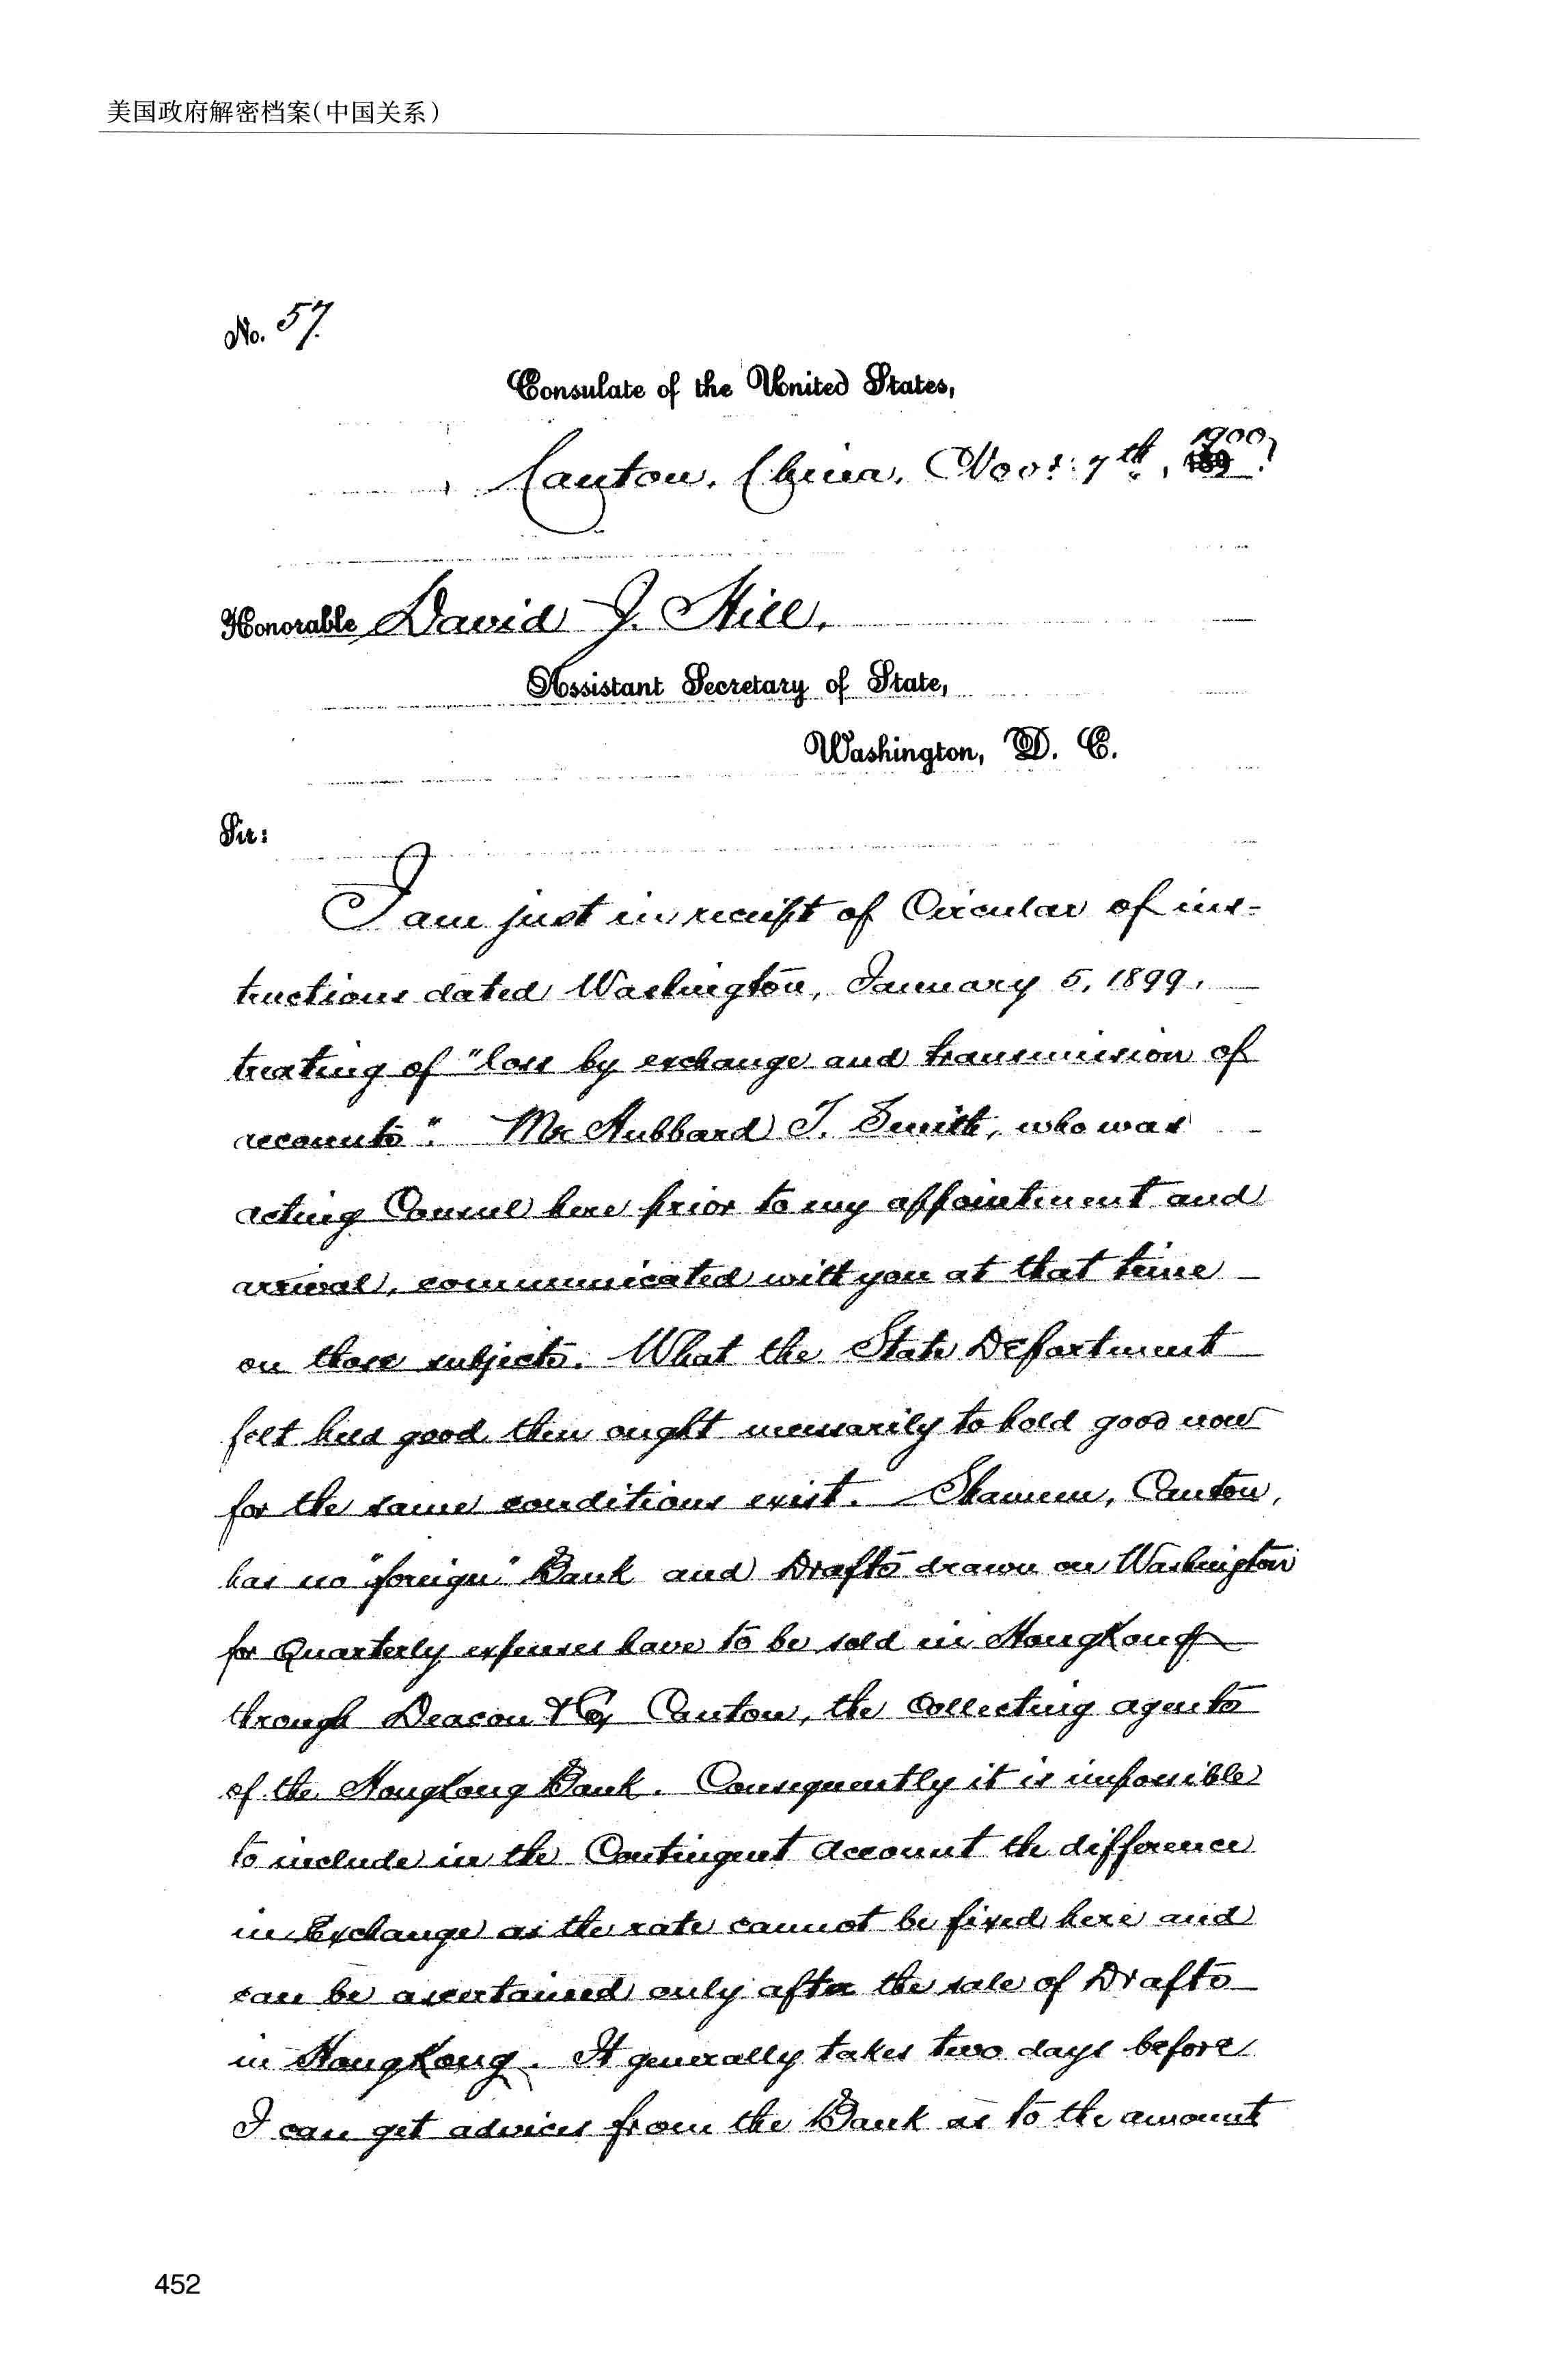 美国政府解密档案(中国关系)
No. 57.
Consulate of the United States,
Canton, China, Novr: 7th, 1900.
Honorable David J. Hill,
Assistant Secretary of State,
Washington, D. C.
Sir:
I am just in receipt of Circular of ins-
tructions dated Washington, January 5, 1899,
treating of "loss by exchange and transmission of
accounts". Mr Hubbard T. Smith, who was
acting Consul here prior to my appointment and
arrival, communicated with you at that time
on those subjects. What the State Department
felt held good then ought necessarily to hold good now
for the same conditions exist. Shameen, Canton,
has no "foreign" Bank and Drafts drawn on Washington
for Quarterly expenses have to be sold in HongKong
through Deacon & Co, Canton, the Collecting agents
of the HongKong Bank. Consequently it is impossible
to include in the Contingent Account the difference
in Exchange as the rate cannot be fixed here and
can be ascertained only after the sale of Drafts
in HongKong. It generally takes two days before
I can get advices from the Bank as to the amount
452